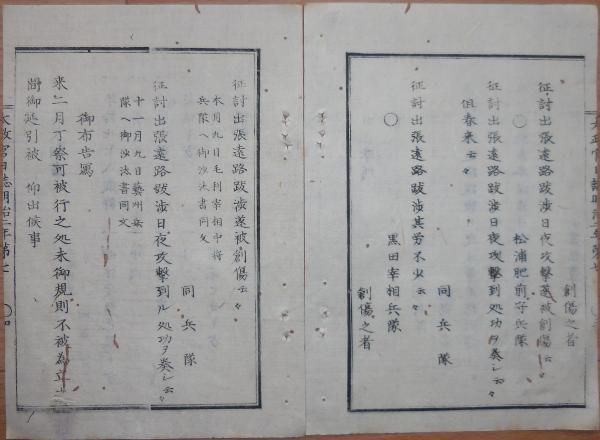 創傷之者
征討出張遠路跋渉日夜攻撃遂被創傷云々
○ 松浦肥前守兵隊
征討出張遠路跋渉日夜攻撃到ル処功ヲ奏シ云々
但春来云々
同兵隊
征討出張遠路跋渉其労不少云々
○ 黒田宰相兵隊
創傷之者
征討出張遠路跋渉遂被創傷云々
本月九日毛利宰相中将
兵隊ヘ御沙汰書同文
同兵隊
征討出張遠路跋渉日夜攻撃到ル処功ヲ奏シ云々
十一月九日藝州兵
隊ヘ御沙汰書同文
御布告写
来二月丁祭可被行之処未御規則不被為立
間御延引被 仰出候事
太政官日誌明治二年第七 ○四